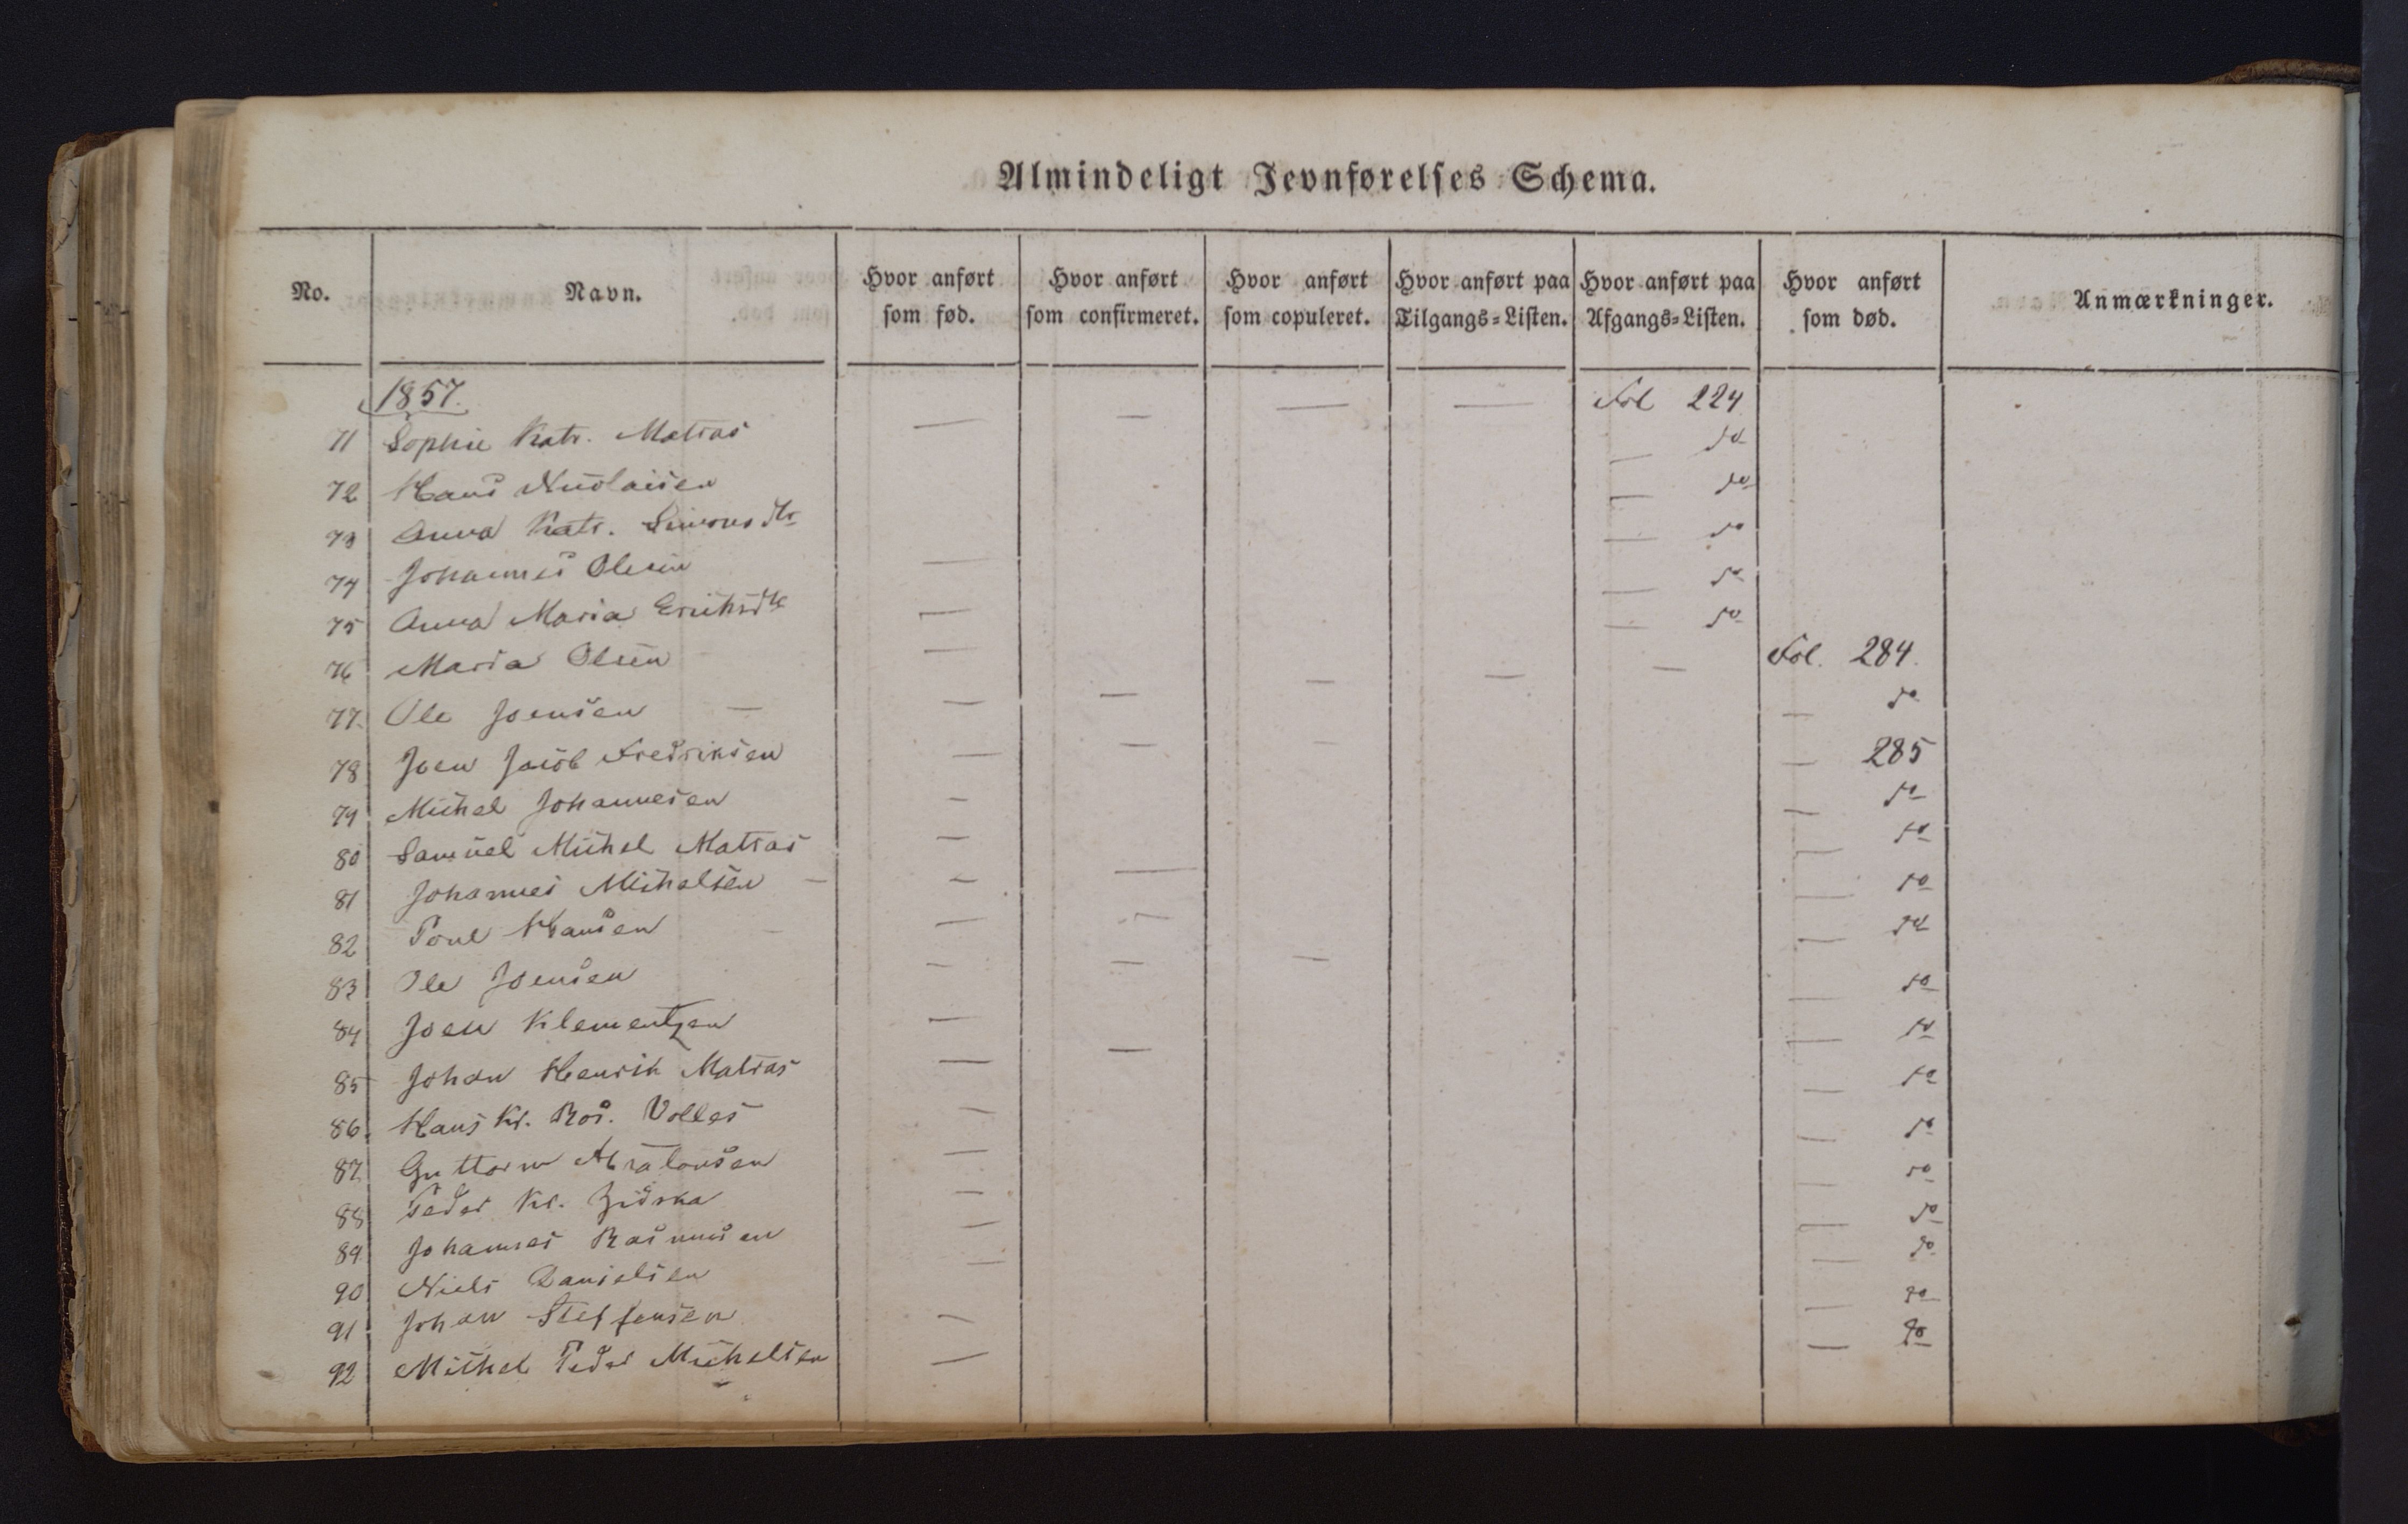 Almindeligt Jevnførelses Schema.
No. Navn. Hvor anført som fød. Hvor anført som confirmeret. Hvor anført som copuleret. Hvor anført paa Tilgangs-Listen. Hvor anført paa Afgangs-Listen. Hvor anført som død. Anmærkninger.
1857.
71 Sophie Katr. Matras — — — — Fol 224
72 Hans Nicolaisen — do
73 Anna Katr. Simonsdtr — do
74 Johannes Olesen — — do
75 Anna Maria Erichsdtr — — do
76 Maria Olsen — — do
77. Ole Joensen — — — — — — Fol. 284.
78 Joen Jacob Fredriksen — — — — do
79 Michel Johannesen — — 285
80 Samuel Michel Matras — — do
81 Johannes Michelsen — — — — do
82 Poul Hansen — — — do
83 Ole Joensen — — — — do
84 Joen Klementzen — — do
85 Johan Henrik Matras — — — do
86. Hans Kr. Ros. Volles — — do
87. Guttorm Absalonsen — — do
88 Peder Kr. — — do
89. Johannes Rasmusen — — do
90 Niels Danielsen — — do
91 Johan Steffensen — — do
92 Michel Peder Michelsen — — do